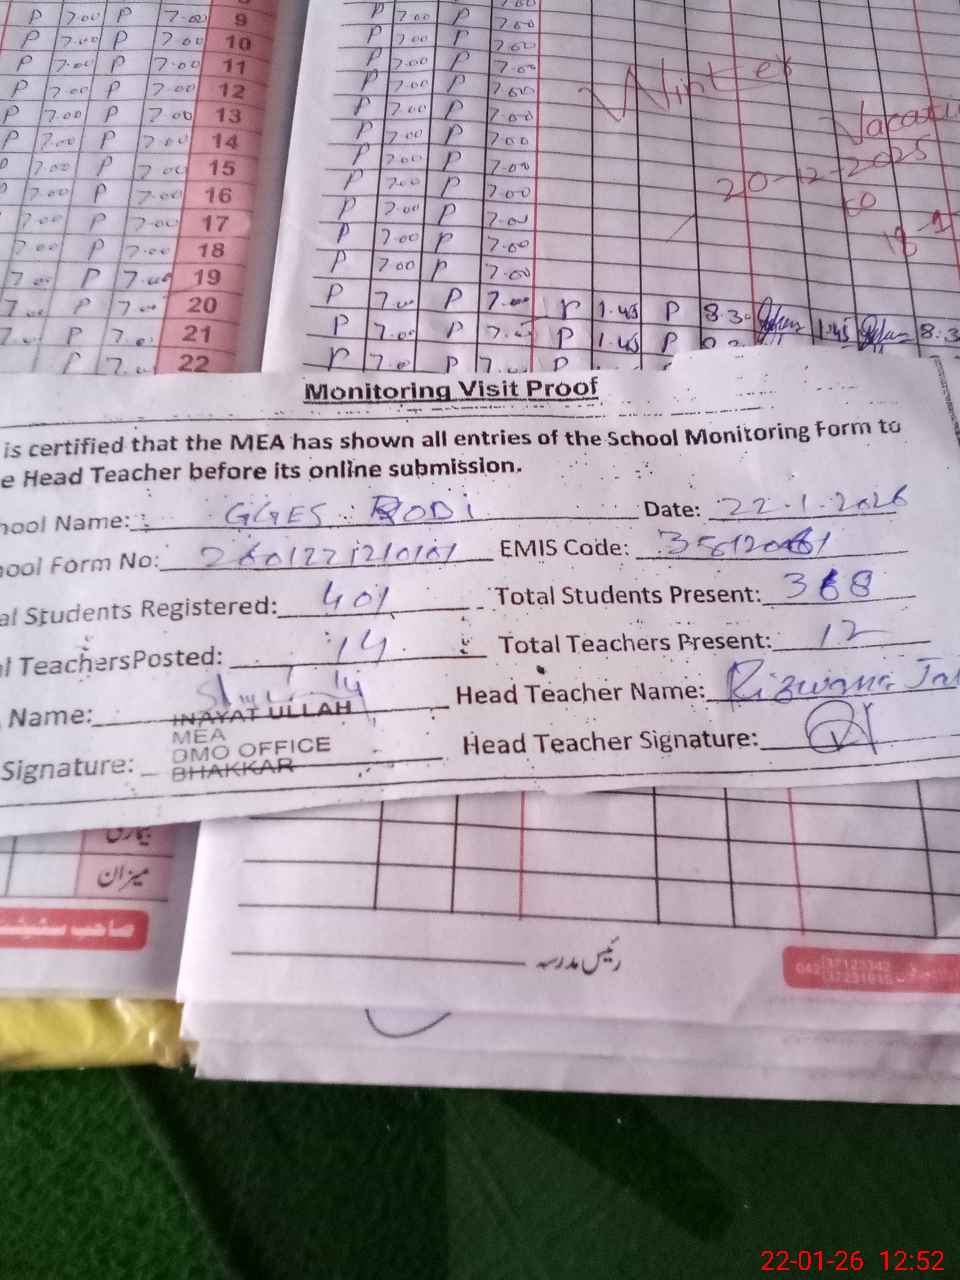 P 7.00 P 7.00 9
P 7.00 P 7.00 10
P 7.00 P 7.00 11
P 7.00 P 7.00 12
P 7.00 P 7.00 13
P 7.00 P 7.00 14
7.00 P 7.00 15
7.00 P 7.00 16
7.00 P 7.00 17
7.00 P 7.00 18
7.00 P 7.00 19
7.00 P 7.00 20
P 7.00 21
P 7.00 22
P 7.00 P 7.00
P 7.00 P 7.00
P 7.00 P 7.00
P 7.00 P 7.00
P 7.00 P 7.00
P 7.00 P 7.00
P 7.00 P 7.00
P 7.00 P 7.00
P 7.00 P 7.00
P 7.00 P 7.00
P 7.00 P 7.00
P 7.00 P 7.00 P 1.45 P 8.30
P 7.00 P 7.00 P 1.45 P 1.45 8.3
P 7.0 P 7. P
Winter
Vacati
20-12-2025
to
18-1
Monitoring Visit Proof
is certified that the MEA has shown all entries of the School Monitoring Form to
e Head Teacher before its online submission.
hool Name: GGES RODI Date: 22.1.2026
ool Form No: EMIS Code:
al Students Registered: 401 Total Students Present: 368
l TeachersPosted: 14 Total Teachers Present: 12
Name: Head Teacher Name: Rizwana
INAYAT ULLAH
MEA
DMO OFFICE
BHAKKAR
Signature: Head Teacher Signature:
بیماری
میزان
صاحب سٹیشنر
رئیس مدرسہ
042 37123342
22-01-26 12:52